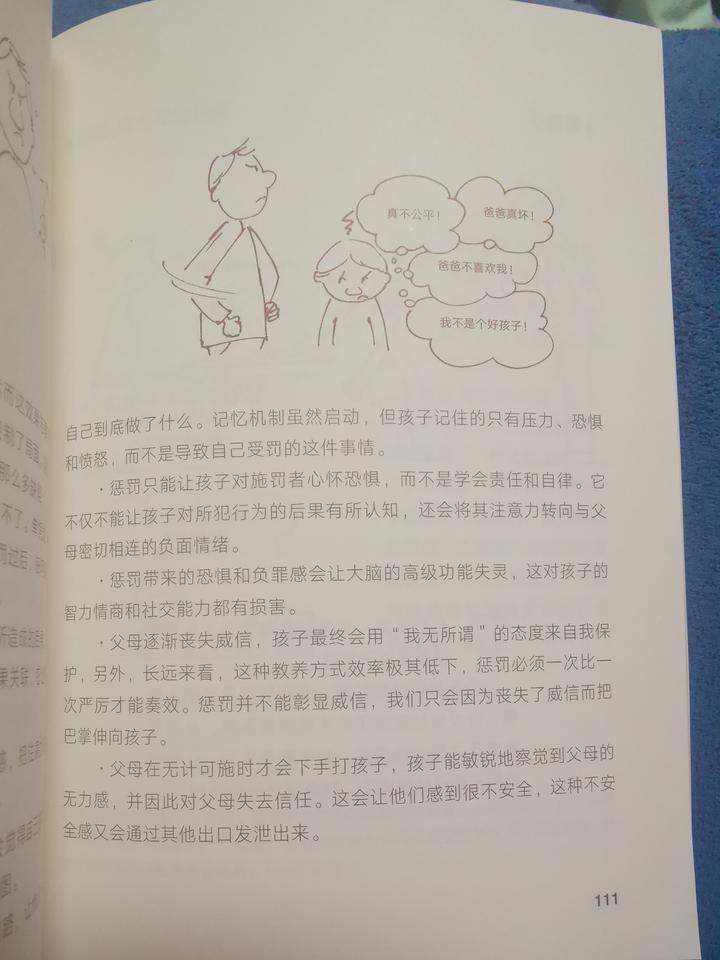 真不公平！
爸爸真坏！
爸爸不喜欢我！
我不是个好孩子！
自己到底做了什么。记忆机制虽然启动，但孩子记住的只有压力、恐惧
和愤怒，而不是导致自己受罚的这件事情。
·惩罚只能让孩子对施罚者心怀恐惧，而不是学会责任和自律。它
不仅不能让孩子对所犯行为的后果有所认知，还会将其注意力转向与父
母密切相连的负面情绪。
·惩罚带来的恐惧和负罪感会让大脑的高级功能失灵，这对孩子的
智力情商和社交能力都有损害。
·父母逐渐丧失威信，孩子最终会用“我无所谓”的态度来自我保
护，另外，长远来看，这种教养方式效率极其低下，惩罚必须一次比一
次严厉才能奏效。惩罚并不能彰显威信，我们只会因为丧失了威信而把
巴掌伸向孩子。
·父母在无计可施时才会下手打孩子，孩子能敏锐地察觉到父母的
无力感，并因此对父母失去信任。这会让他们感到很不安全，这种不安
全感又会通过其他出口发泄出来。
111